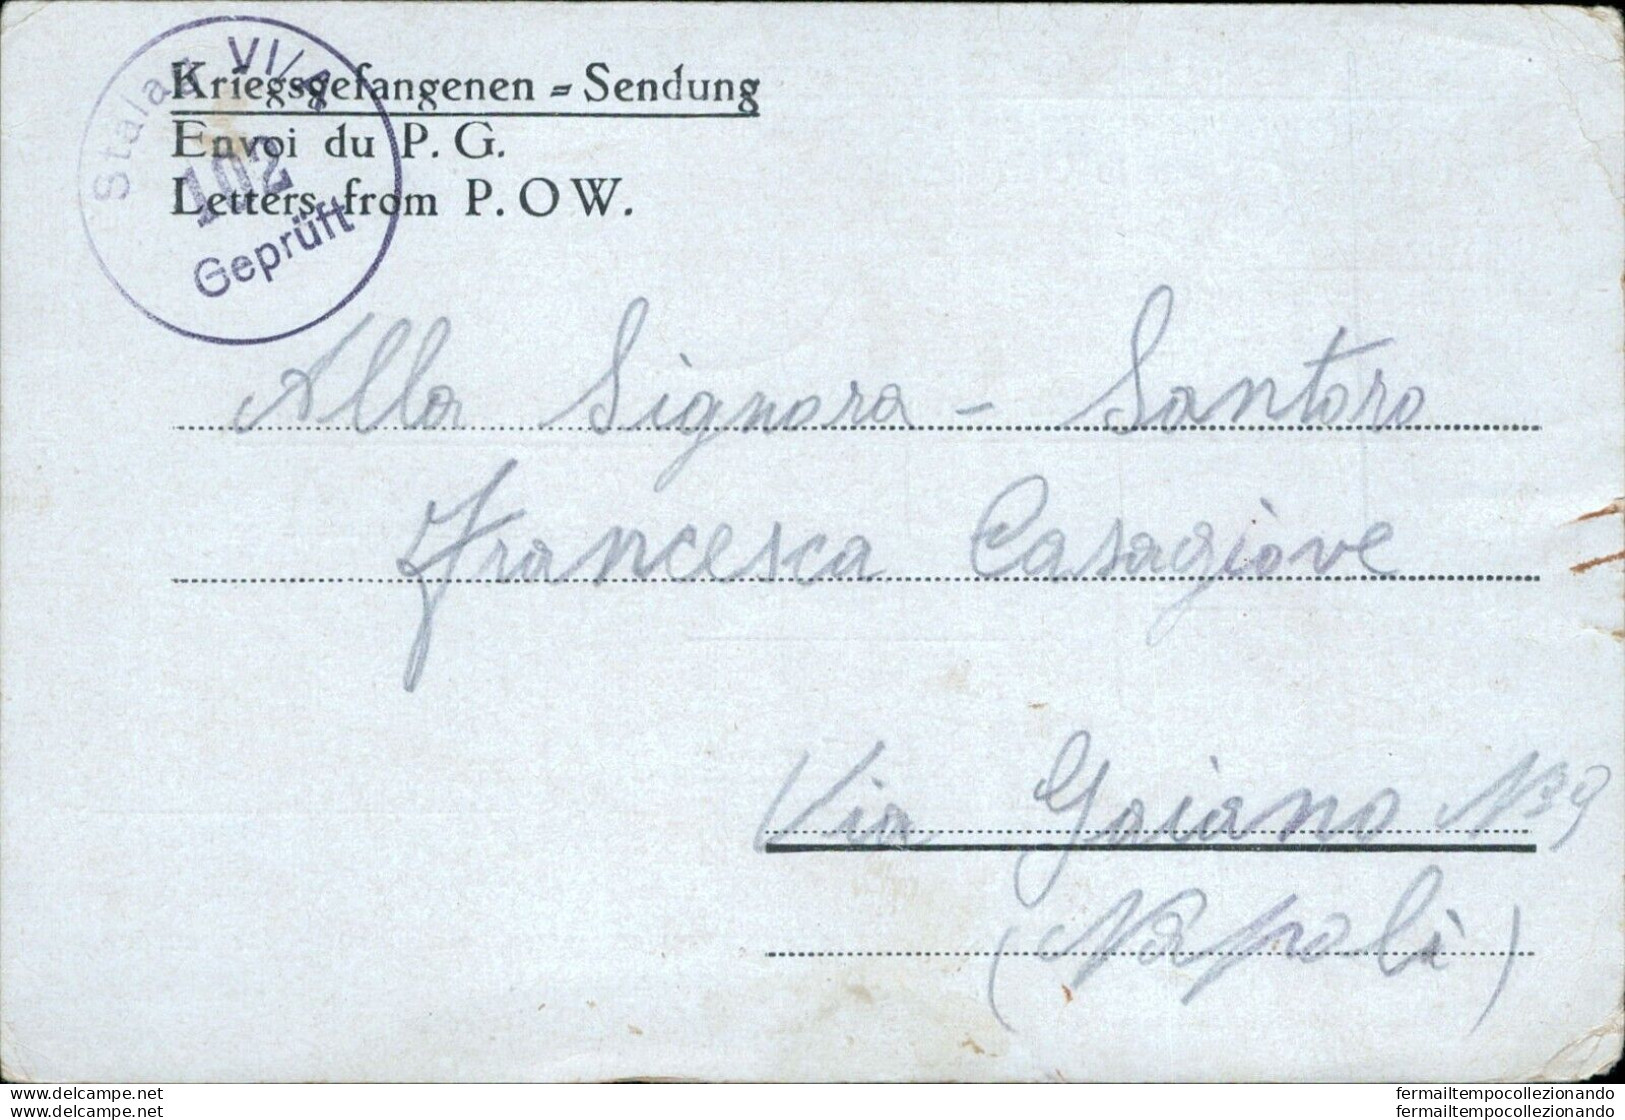 Stalag VI/A
102
Geprüft
Kriegsgefangenen = Sendung
Envoi du P. G.
Letters from P. OW.
Alla Signora - Santoro
Francesca Casagiove
Via Gaiano N 39
(Napoli)
www.delcampe.net
www.delcampe.net
fermailtempocollezionando
fermailtempocollezionando